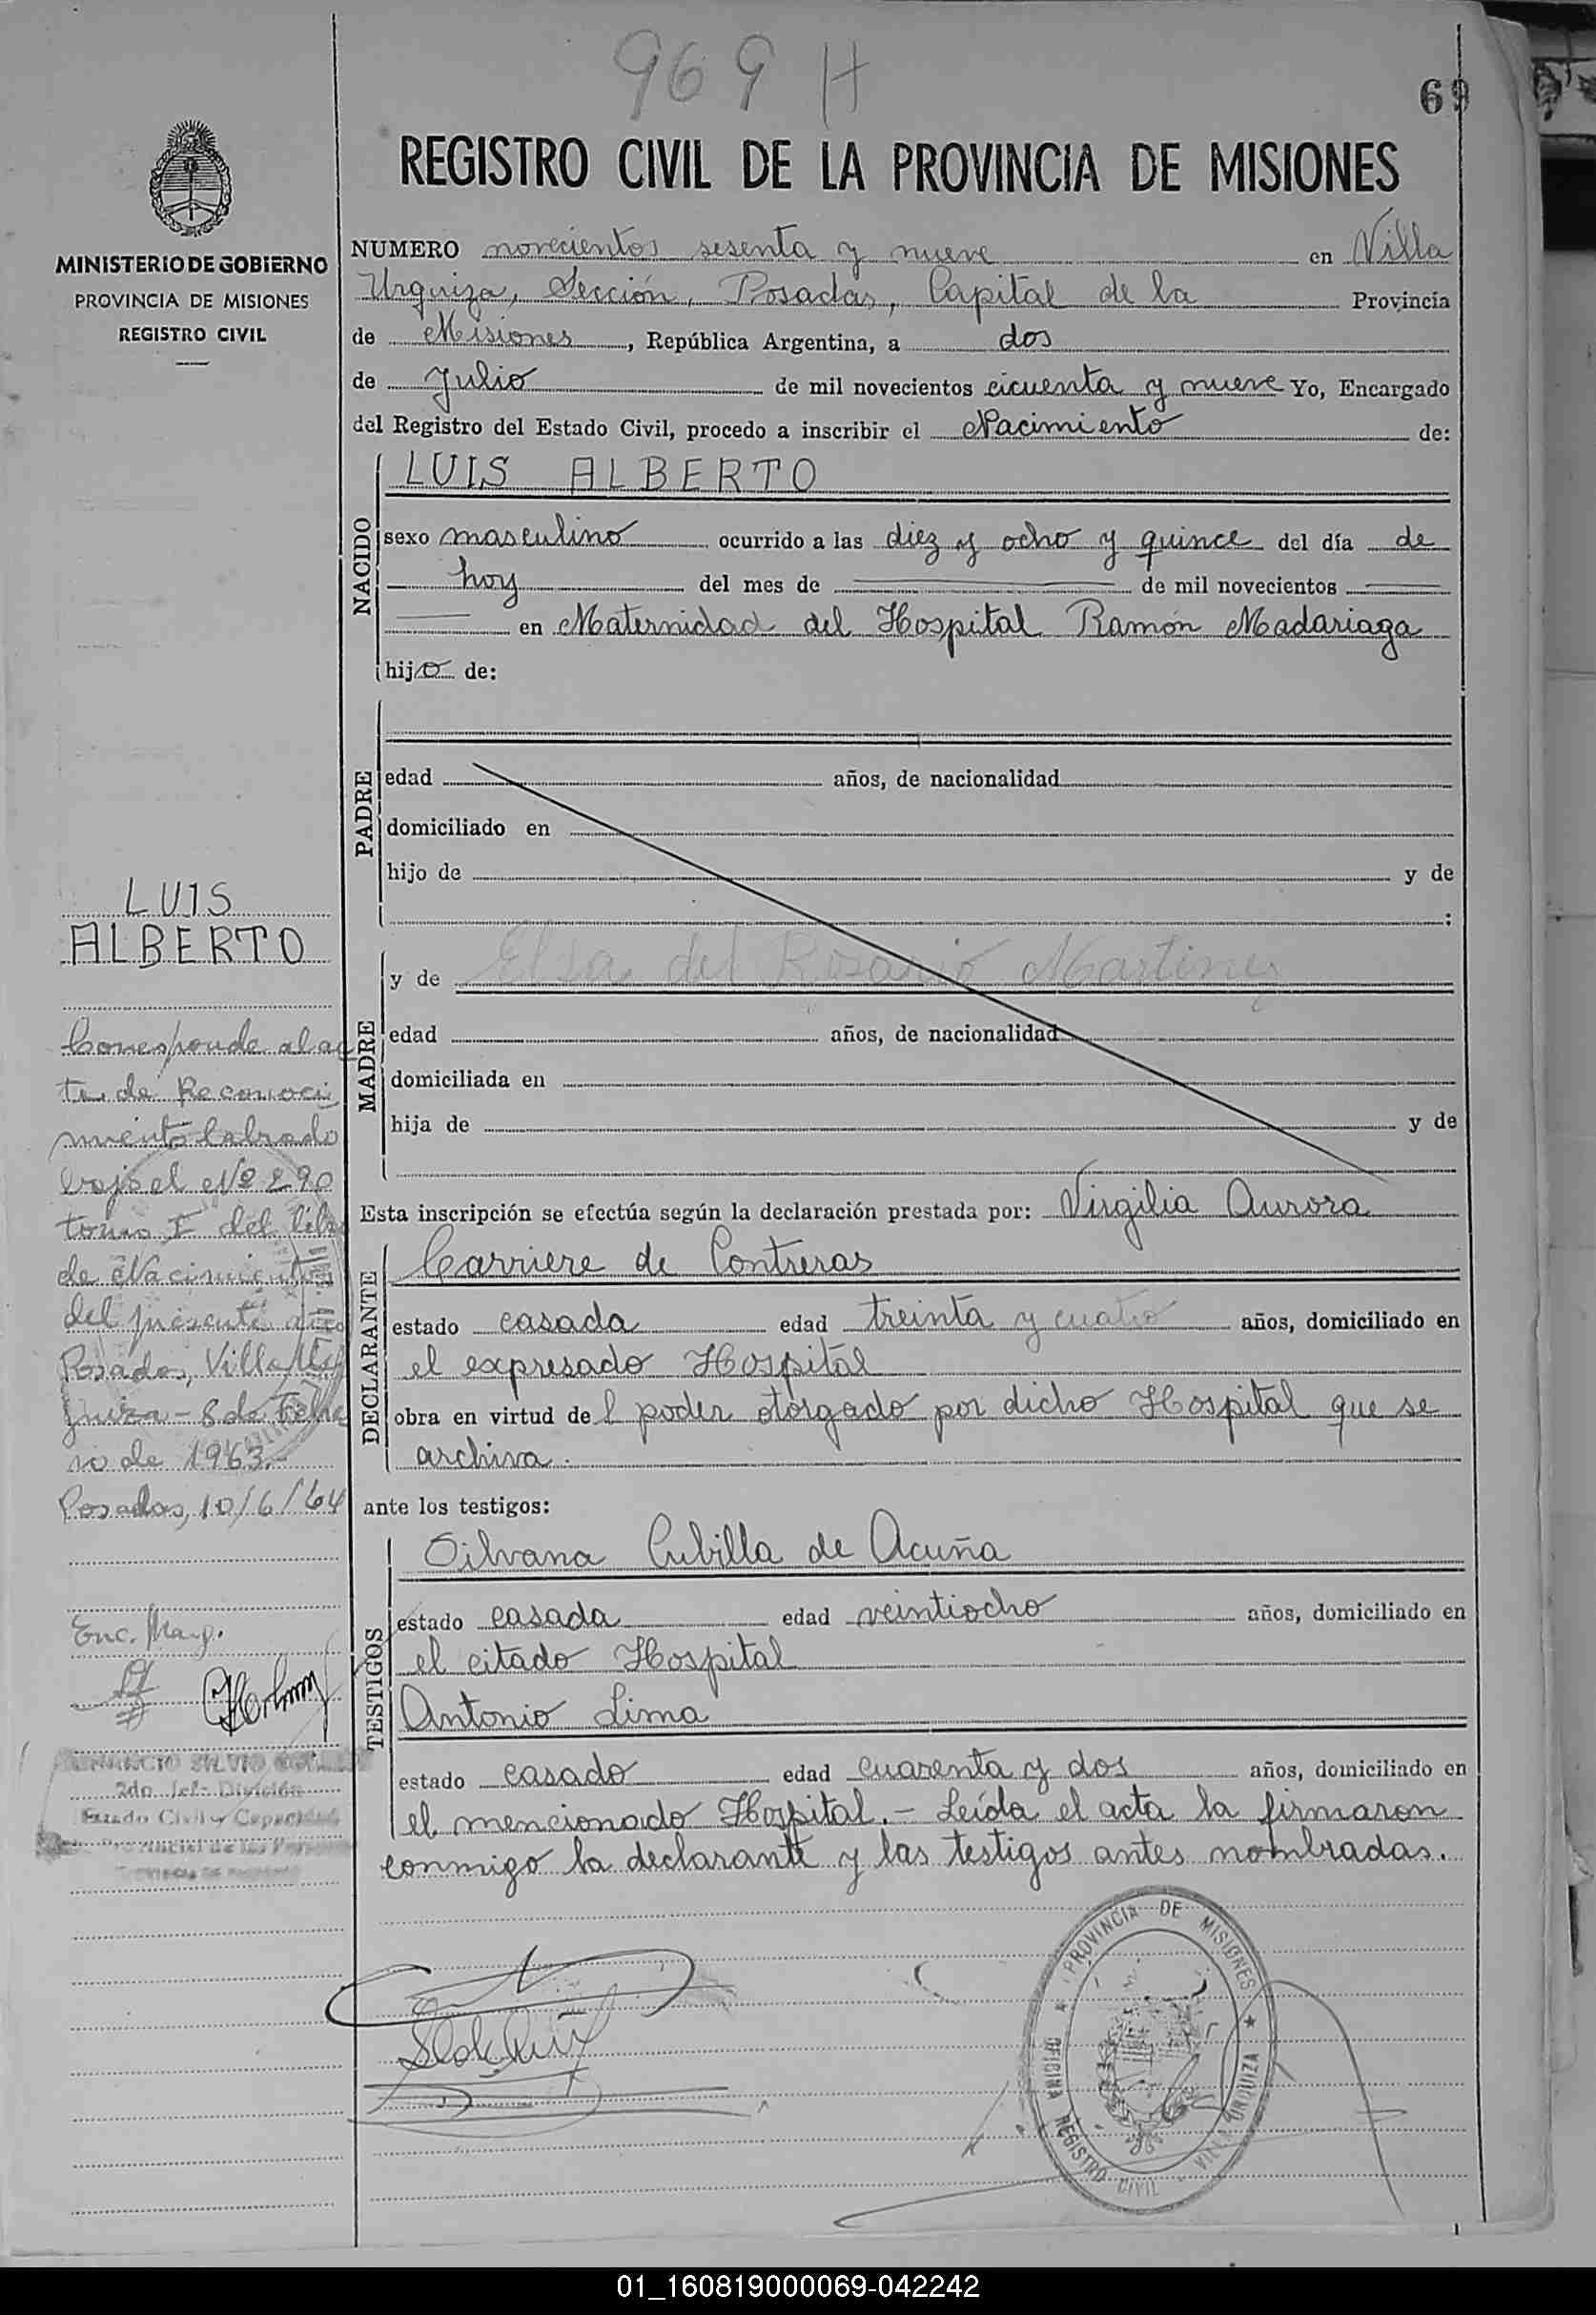 969 H
69
REGISTRO CIVIL DE LA PROVINCIA DE MISIONES
MINISTERIO DE GOBIERNO
PROVINCIA DE MISIONES
REGISTRO CIVIL
NUMERO novecientos sesenta y nueve en Villa
Urquiza, Sección, Posadas, Capital de la Provincia
de Misiones, República Argentina, a dos
de Julio de mil novecientos cicuenta y nueve Yo, Encargado
del Registro del Estado Civil, procedo a inscribir el Nacimiento de:
NACIDO
LUIS ALBERTO
sexo masculino ocurrido a las diez y ocho y quince del día de
hoy del mes de de mil novecientos
en Maternidad del Hospital Ramón Madariaga
hijo de:
PADRE
edad años, de nacionalidad
domiciliado en
hijo de y de
:
MADRE
y de Elsa del Rosario Martinez
edad años, de nacionalidad
domiciliada en
hija de y de
Esta inscripción se efectúa según la declaración prestada por: Virgilia Aurora
DECLARANTE
Carriere de Contreras
estado casada edad treinta y cuatro años, domiciliado en
el expresado Hospital
obra en virtud del poder otorgado por dicho Hospital que se
archiva.
ante los testigos:
TESTIGOS
Silvana Cubilla de Acuña
estado casada edad veintiocho años, domiciliado en
el citado Hospital
Antonio Lima
estado casado edad cuarenta y dos años, domiciliado en
el mencionado Hospital.- Leída el acta la firmaron
conmigo la declarante y las testigos antes nombradas.
LUIS
ALBERTO
Corresponde al ac
ta de Reconoci
miento labrado
bajo el Nº 290
tomo I del libro
de Nacimientos
del presente año
Posadas, Villa Ur
quiza - 8 de Febre
ro de 1963.-
Posadas, 10/6/64
Enc. Marg.
SILVIO
2do. Jefe División
Estado Civil y Capacidad
Provincial de las Personas
PROVINCIA DE MISIONES
OFICINA REGISTRO CIVIL
VILLA URQUIZA
01_160819000069-042242